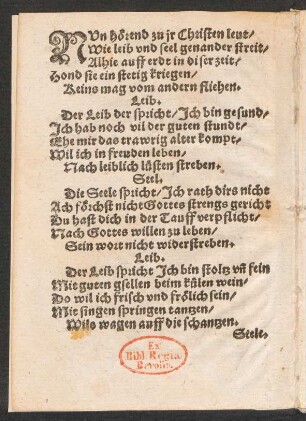 NUn hörend zu jr Christen leut/
Wie leib vnd seel genander streit/
Alhie auff erdt in diser zeit/
Hond sie ein stetig kriegen/
Keins mag vom andern fliehen.
Leib.
Der Leib der spricht/Ich bin gesund/
Ich hab noch vil der guten stundt/
Ehe mir das trawrig alter kompt/
Wil ich in freuden leben/
Nach leiblich lüsten streben.
Seel.
Die Seele spricht/Ich rath dirs nicht
Ach förchst nicht Gottes strengs gericht
Du hast dich in der Tauff verpflicht/
Nach Gottes willen zu leben/
Sein wort nicht widerstreben.
Leib.
Der Leib spricht Ich bin stoltz vñ fein
Mit guten gsellen beim külen wein/
Do wil ich frisch vnd frölich sein/
Mit singen springen tantzen/
Wils wagen auff die schantzen.
Seele.
Ex
Bibl. Regia
Berolin.